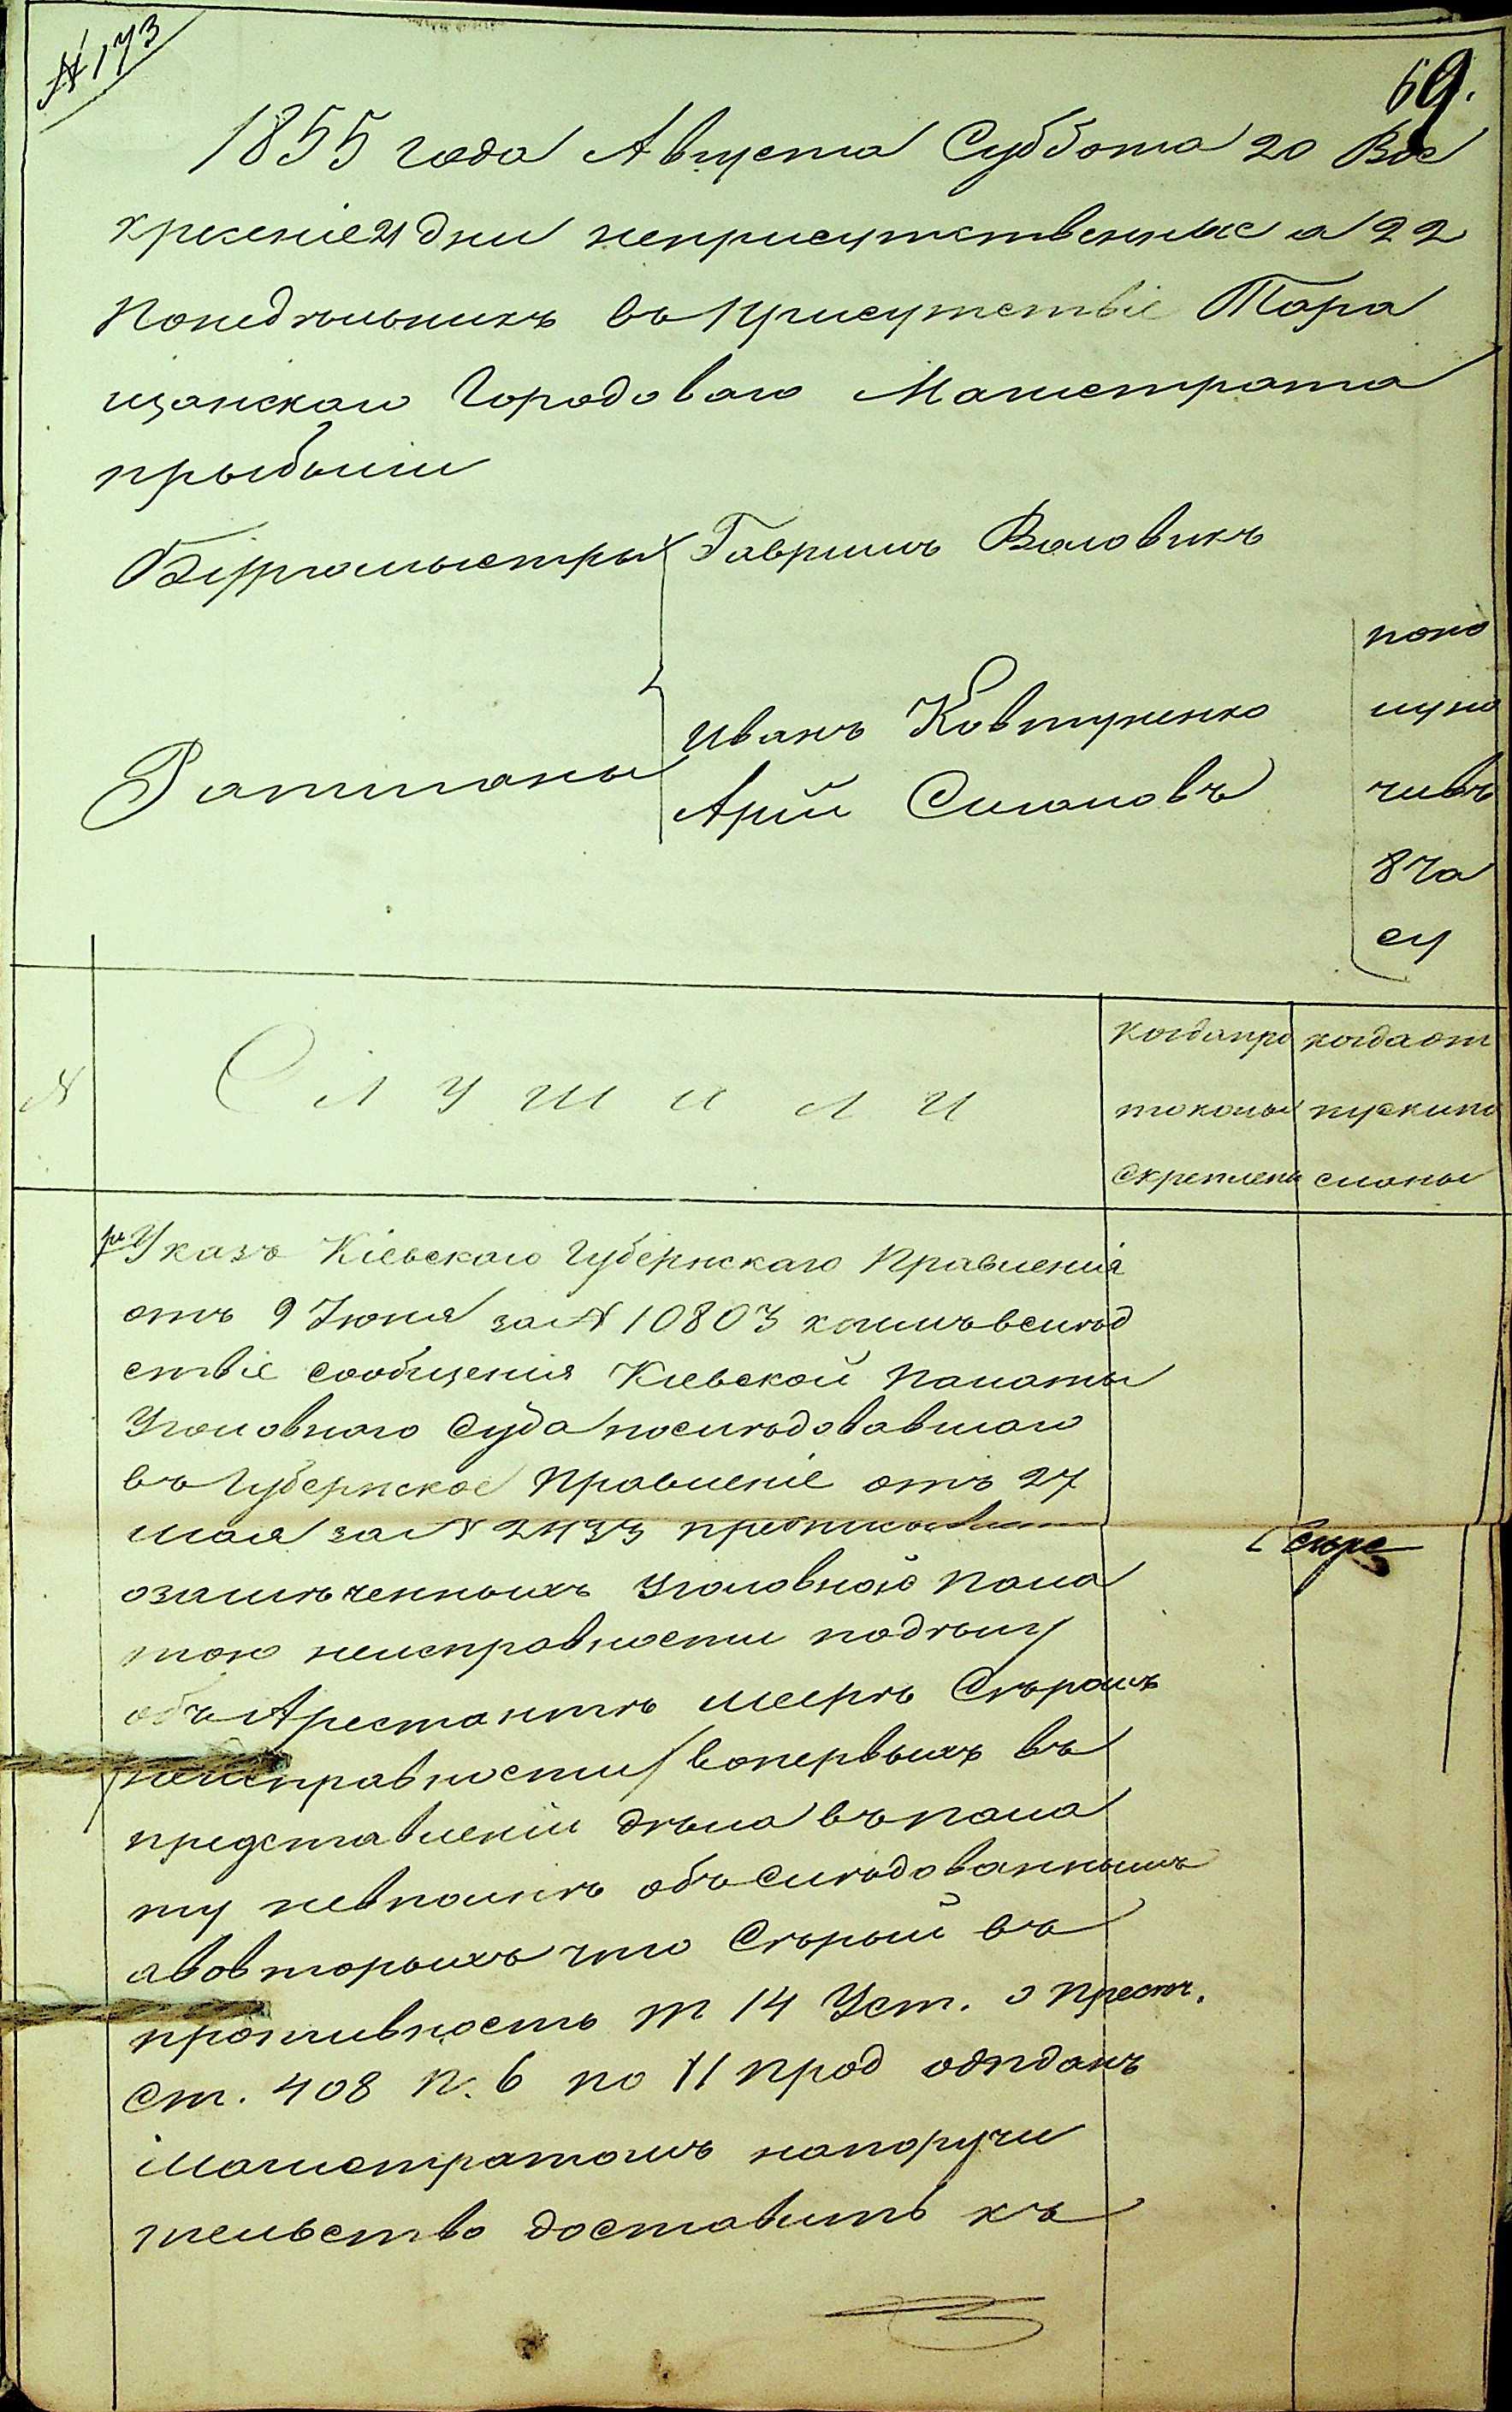 № 173
69.
1855 года Августа Суббота 20 Вос
кресеніе 21 дни неприсутственные а 22
Понедѣльникъ въ присутствіе Тара
щанскаго Городоваго Магистрата
прыбыли
Бургомыстры Гаврилъ Воловикъ
Ратманы
Иванъ Ковтуненко
Арій Сигаловъ
попо
луно
чивъ
8 ча
су
№
Слушали
когда про
токолы
скреплены
когда от
пуски по
сланы
Указъ Кіевскаго Губернскаго Правленія
отъ 9 Іюня за № 10803 коимъ вслѣд
ствіе сообщенія Кіевской Палаты
Уголовнаго Суда послѣдовавшаго
въ Губернское Правленіе отъ 27
мая за № 2433
о замѣченныхъ Уголовною Пала
тою неисправности по дѣлу
объ Арестантѣ Меерѣ Сѣромъ
неисправности/ вопервыхъ въ
представленіи дѣла въ пала
ту невполнѣ обслѣдованнымъ
а вовторыхъ что Сѣрый въ
противность т 14 Уст. о Прест.
Ст. 408 п. 6 по II прод отданъ
Магистратомъ на поручи
тельство доставить къ